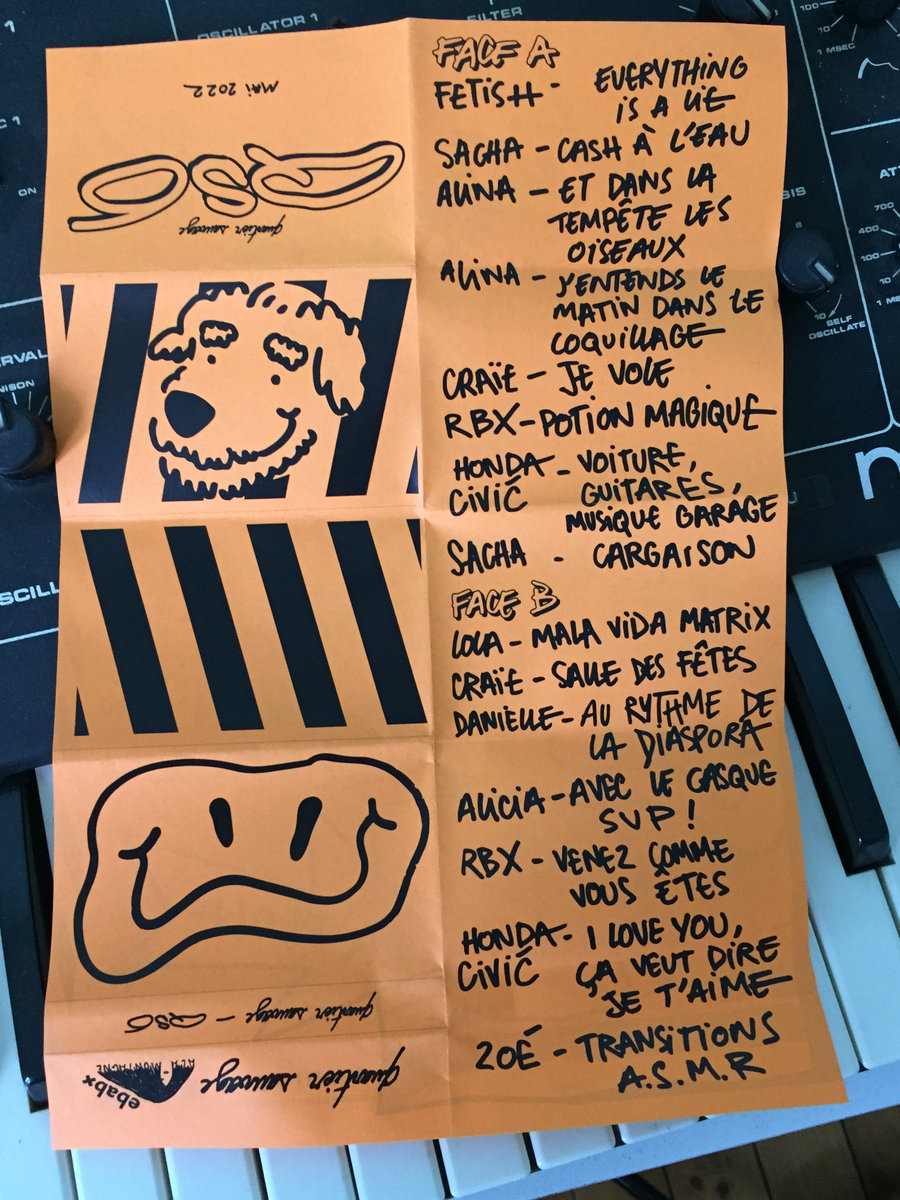 OSCILLATOR 1
FILTER
1 MSEC
100
100
ON
MAI 2022
QSG
quartier sauvage
FACE A
FETISH - EVERYTHING
IS A LIE
SACHA - CASH À L'EAU
ALINA - ET DANS LA
TEMPÊTE LES
OISEAUX
ALINA - J'ENTENDS LE
MATIN DANS LE
COQUILLAGE
CRAÏE - JE VOLE
RBX - POTION MAGIQUE
HONDA - VOITURE,
CIVIC GUITARES,
MUSIQUE GARAGE
SACHA - CARGAISON
FACE B
LOLA - MALA VIDA MATRIX
CRAÏE - SALLE DES FÊTES
DANIELLE - AU RYTHME DE
LA DIASPORA
ALICIA - AVEC LE CASQUE
SVP!
RBX - VENEZ COMME
VOUS ÊTES
HONDA - I LOVE YOU,
CIVIC ÇA VEUT DIRE
JE T'AIME
ZOÉ - TRANSITIONS
A.S.M.R
quartier sauvage - QSG
quartier sauvage
ebabx
À LA MONTAGNE
700
400
100
SELF
OSCILLATE
10